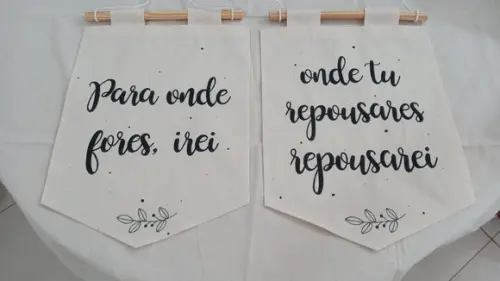 Para onde
fores, irei
onde tu
repousares
repousarei